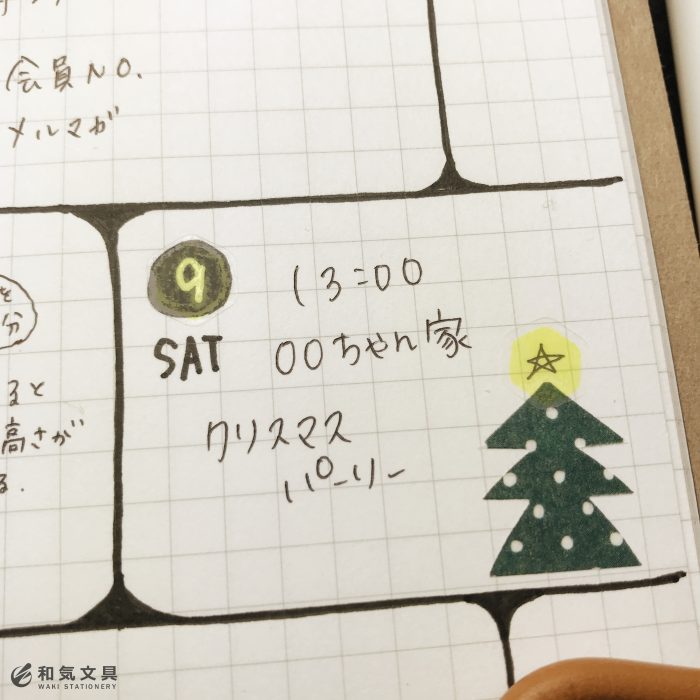 会員NO.
メルマガ
を
分
ると
高さが
る.
9
SAT
13:00
〇〇ちゃん家
クリスマス
パーリー
和気文具
WAKI STATIONERY